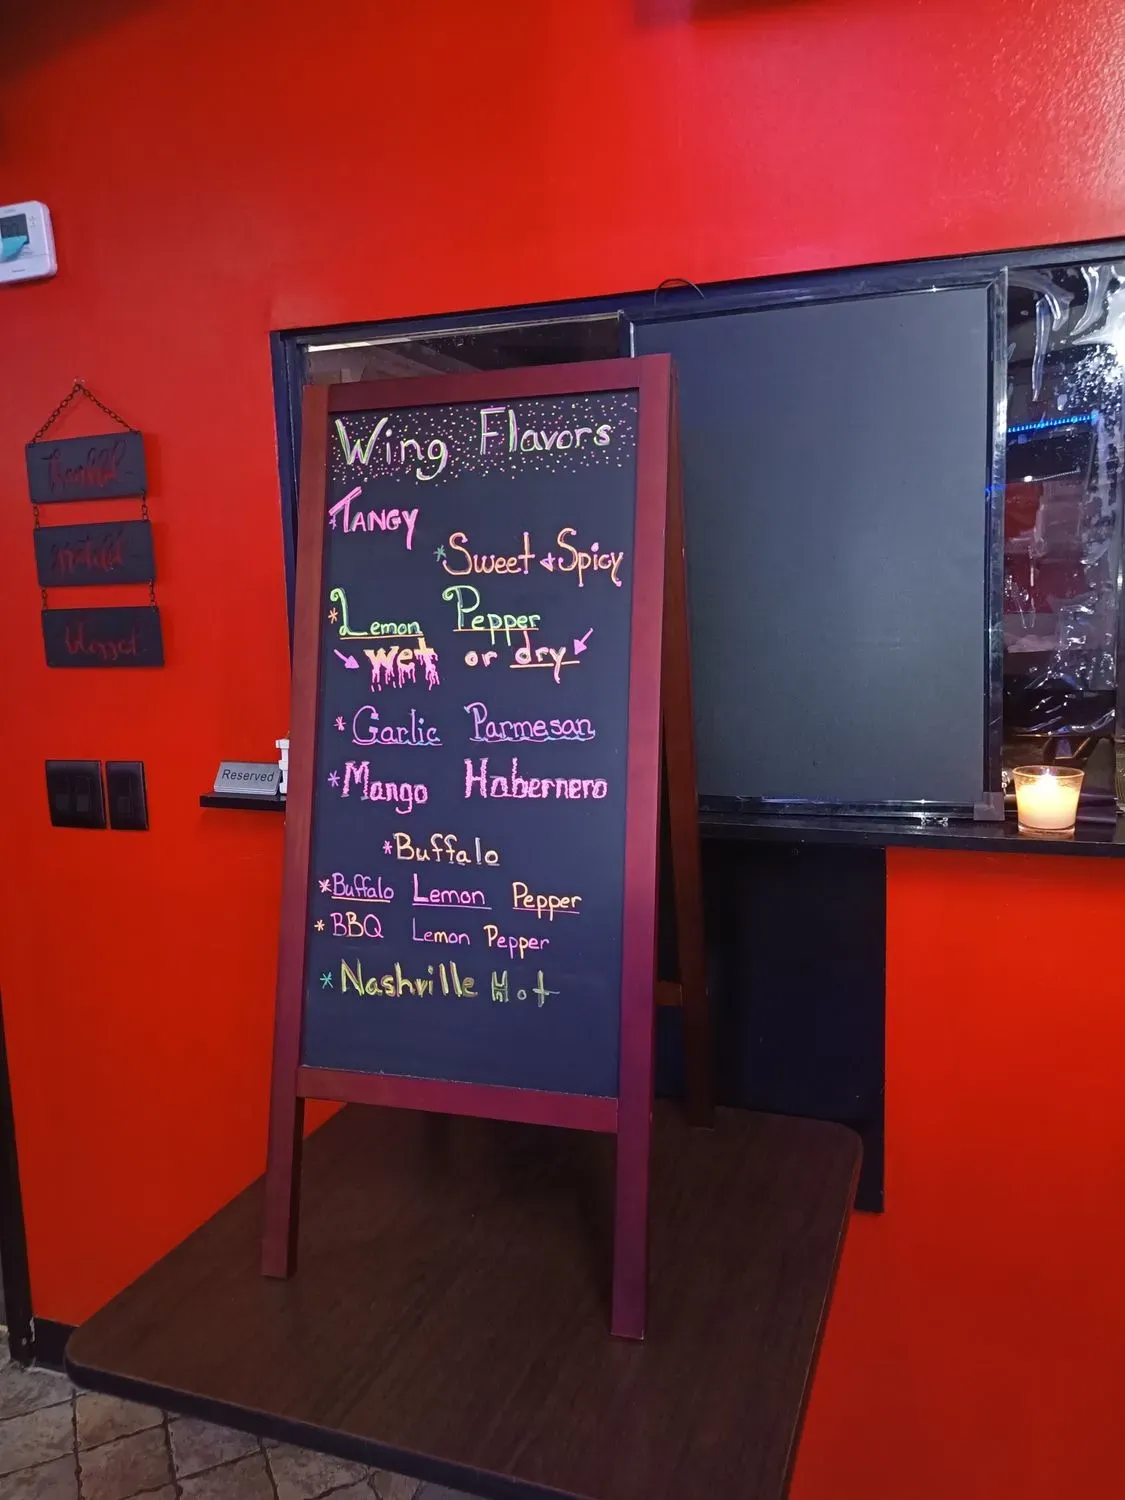 Wing Flavors
*TANGY
*Sweet & Spicy
*Lemon Pepper
wet or dry
*Garlic Parmesan
*Mango Habernero
*Buffalo
*Buffalo Lemon Pepper
*BBQ Lemon Pepper
*Nashville Hot
thankful
grateful
blessed
Reserved